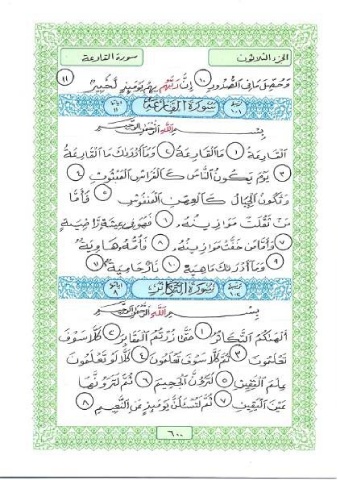 الجزء الثلاثون
سورة القارعة
وَحُصِّلَ مَا فِى الصُّدُورِ ١٠ إِنَّ رَبَّهُم بِهِمْ يَوْمَئِذٍ لَّخَبِيرٌ ١١
١٠١ سورة القارعة ١١
بِسْمِ اللَّهِ الرَّحْمَٰنِ الرَّحِيمِ
الْقَارِعَةُ ١ مَا الْقَارِعَةُ ٢ وَمَا أَدْرَىٰكَ مَا الْقَارِعَةُ
٣ يَوْمَ يَكُونُ النَّاسُ كَالْفَرَاشِ الْمَبْثُوثِ ٤
وَتَكُونُ الْجِبَالُ كَالْعِهْنِ الْمَنْفُوشِ ٥ فَأَمَّا
مَن ثَقُلَتْ مَوَازِينُهُ ٦ فَهُوَ فِى عِيشَةٍ رَّاضِيَةٍ
٧ وَأَمَّا مَنْ خَفَّتْ مَوَازِينُهُ ٨ فَأُمُّهُ هَاوِيَةٌ
٩ وَمَا أَدْرَىٰكَ مَاهِيَهْ ١٠ نَارٌ حَامِيَةٌ ١١
١٠٢ سورة التكاثر ٨
بِسْمِ اللَّهِ الرَّحْمَٰنِ الرَّحِيمِ
أَلْهَىٰكُمُ التَّكَاثُرُ ١ حَتَّىٰ زُرْتُمُ الْمَقَابِرَ ٢ كَلَّا سَوْفَ
تَعْلَمُونَ ٣ ثُمَّ كَلَّا سَوْفَ تَعْلَمُونَ ٤ كَلَّا لَوْ تَعْلَمُونَ
عِلْمَ الْيَقِينِ ٥ لَتَرَوُنَّ الْجَحِيمَ ٦ ثُمَّ لَتَرَوُنَّهَا
عَيْنَ الْيَقِينِ ٧ ثُمَّ لَتُسْئَلُنَّ يَوْمَئِذٍ عَنِ النَّعِيمِ ٨
٦٠٠